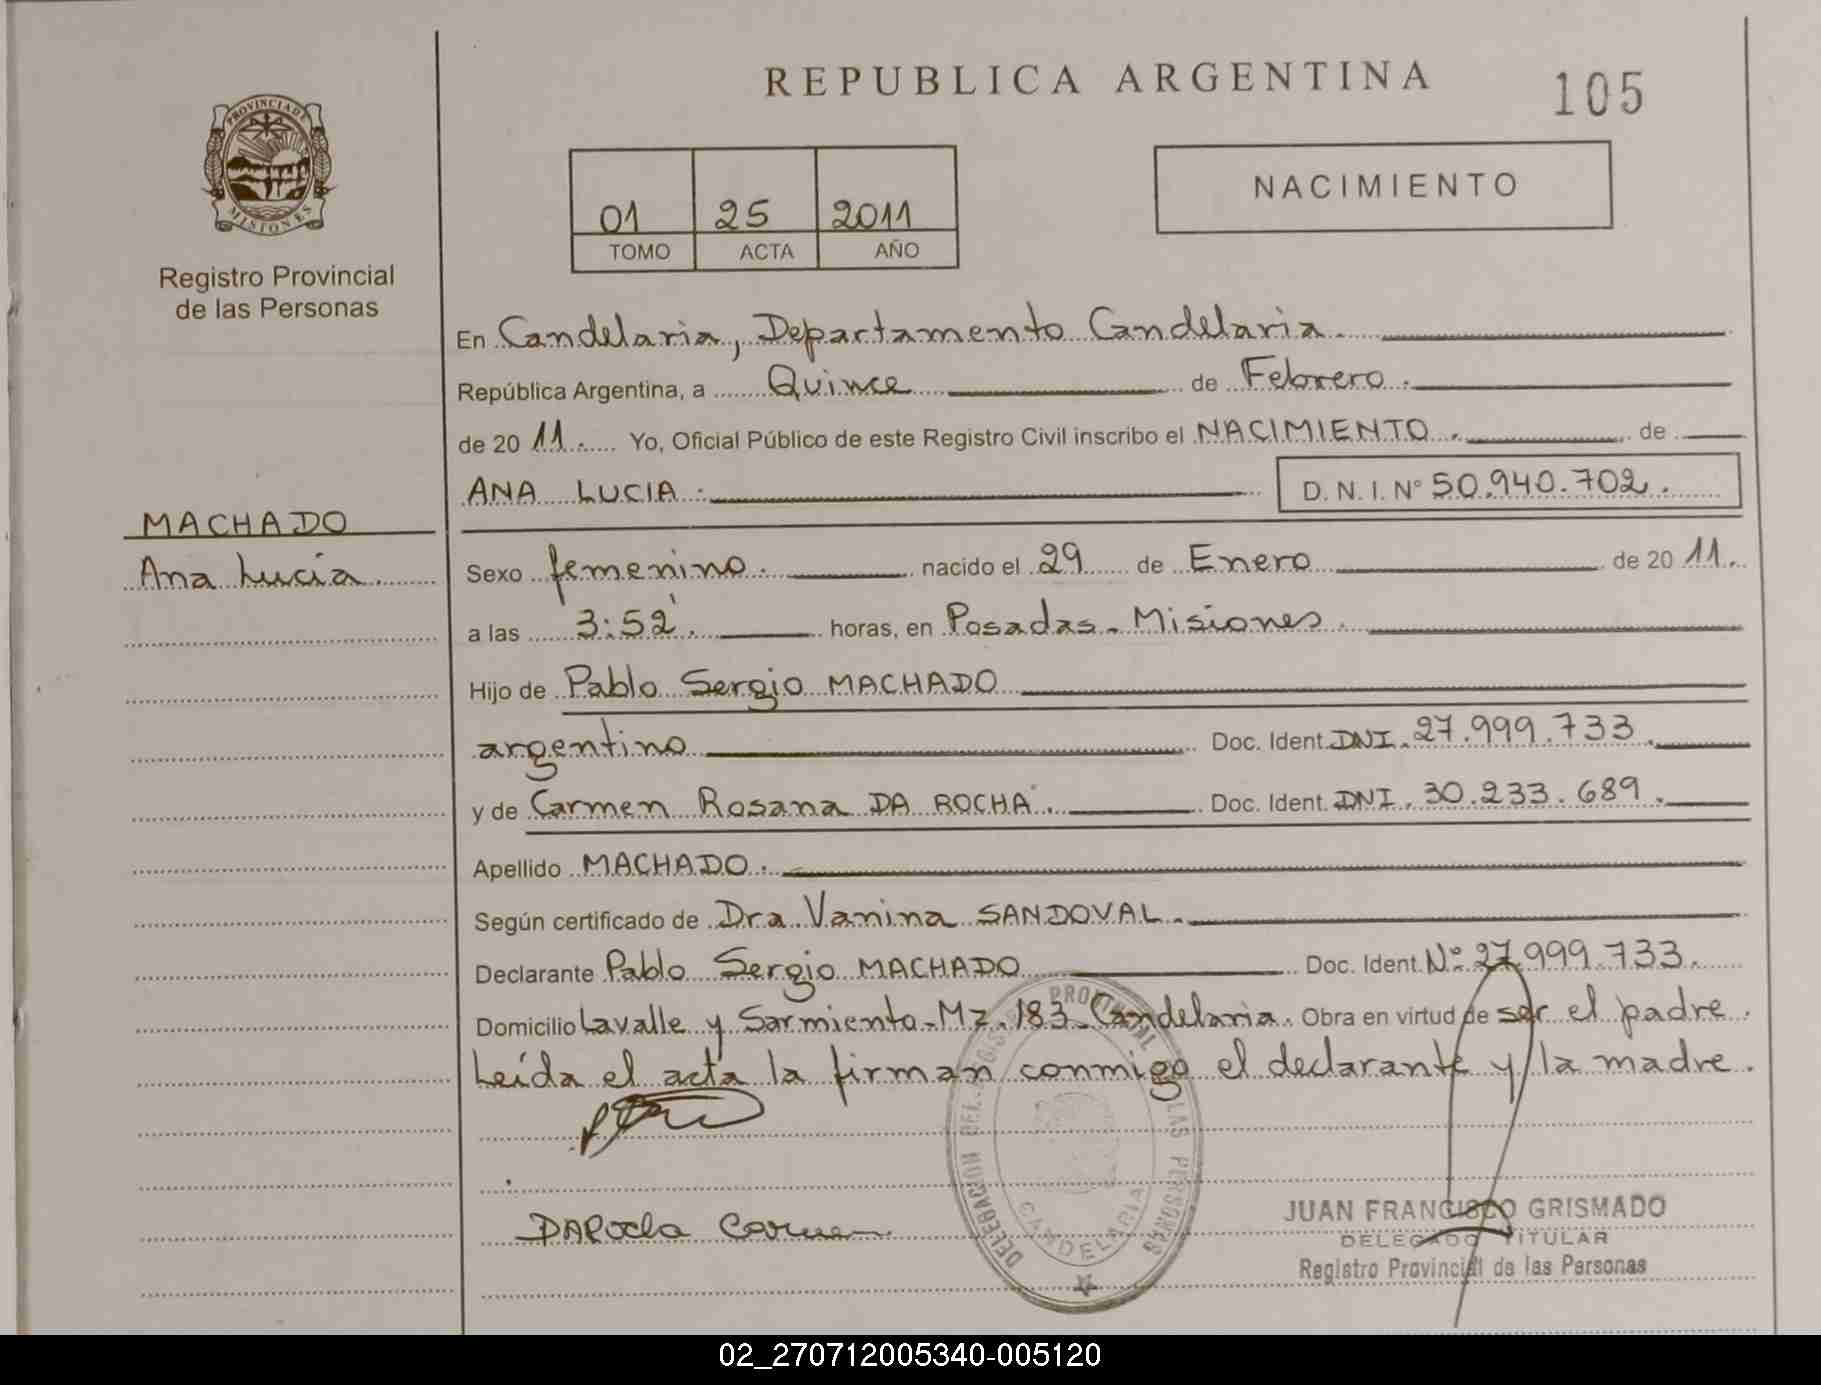 REPUBLICA ARGENTINA
105
PROVINCIA DE
MISIONES
Registro Provincial
de las Personas
01 25 2011
TOMO ACTA AÑO
NACIMIENTO
En Candelaria, Departamento Candelaria.
República Argentina, a Quince de Febrero.
de 20 11. Yo, Oficial Público de este Registro Civil inscribo el NACIMIENTO. de
ANA LUCIA. D. N. I. Nº 50.940.702.
MACHADO
Ana Lucia
Sexo femenino. nacido el 29 de Enero de 20 11.
a las 3:52'. horas, en Posadas - Misiones.
Hijo de Pablo Sergio MACHADO
argentino Doc. Ident. DNI. 27.999.733.
y de Carmen Rosana DA ROCHA. Doc. Ident. DNI. 30.233.689.
Apellido MACHADO.
Según certificado de Dra. Vanina SANDOVAL.
Declarante Pablo Sergio MACHADO Doc. Ident. Nº 27.999.733.
Domicilio Lavalle y Sarmiento - Mz. 183 - Candelaria. Obra en virtud de ser el padre.
Leída el acta la firman conmigo el declarante y la madre.
DELEGACION DEL REGISTRO PROVINCIAL DE LAS PERSONAS
CANDELARIA
DARocha Carmen
JUAN FRANCISCO GRISMADO
DELEGADO TITULAR
Registro Provincial de las Personas
02_270712005340-005120